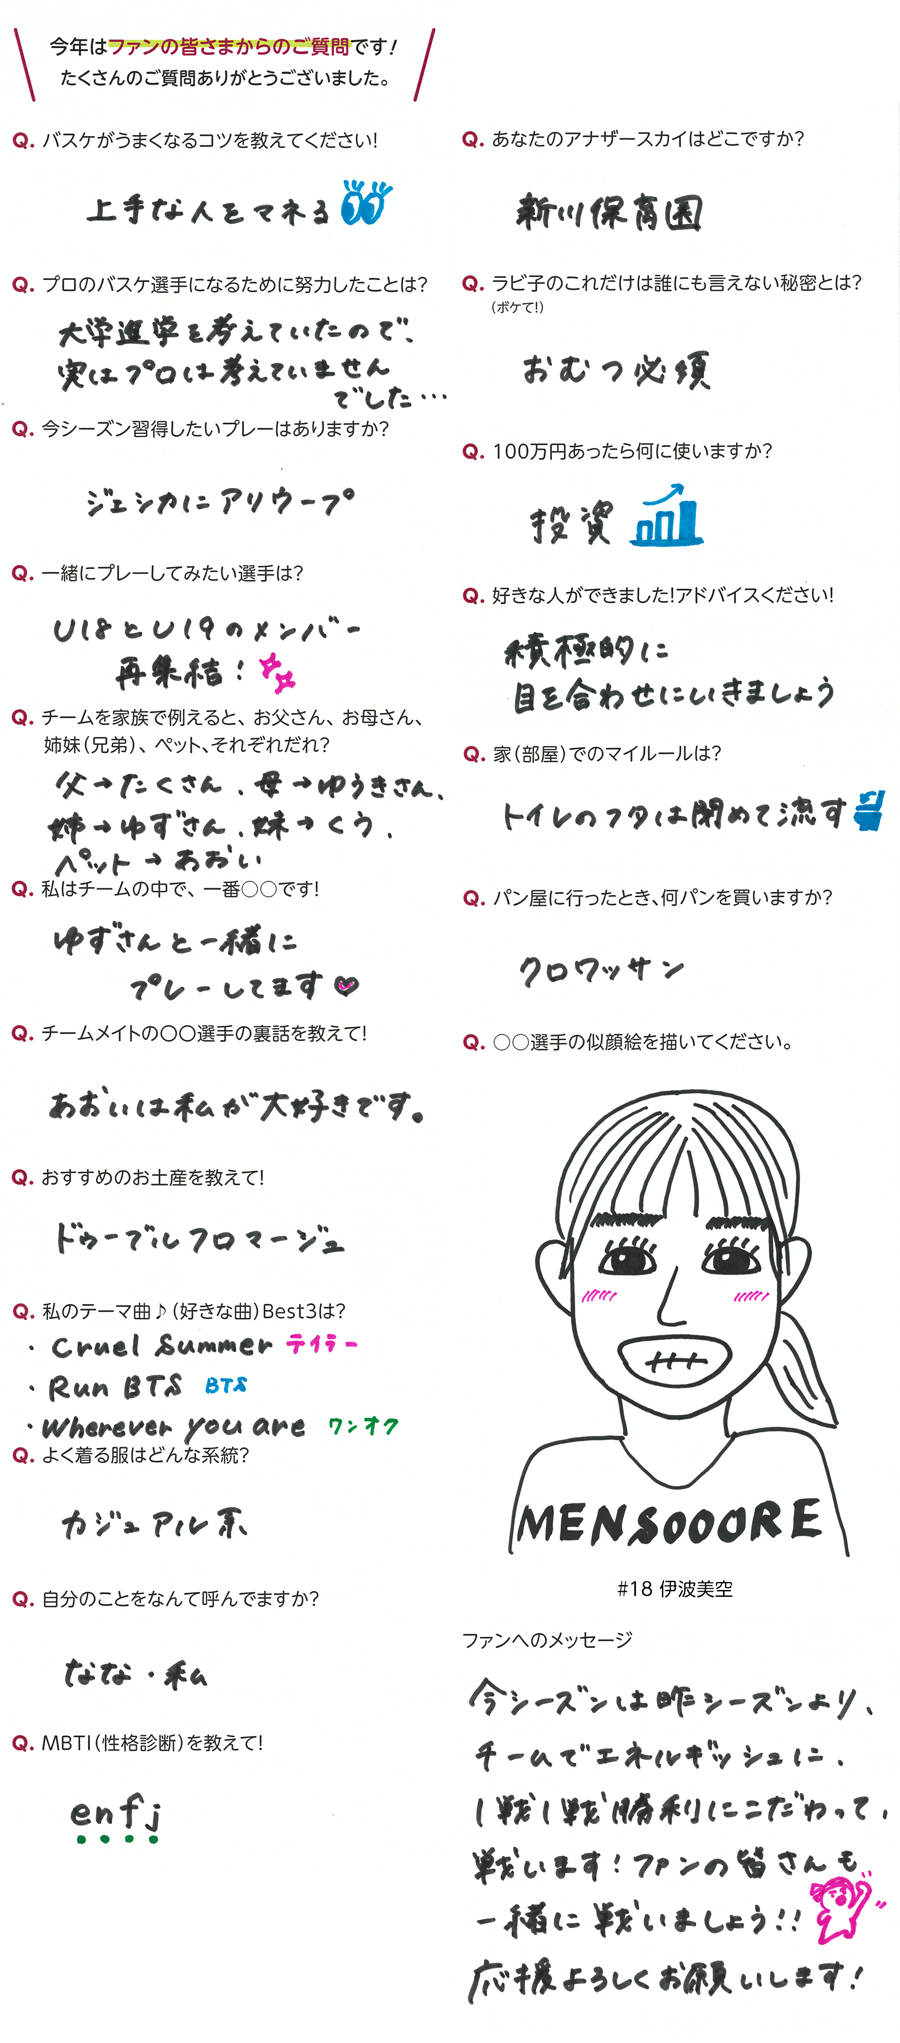 今年はファンの皆さまからのご質問です!
たくさんのご質問ありがとうございました。
Q. バスケがうまくなるコツを教えてください!
上手な人をマネる
Q. プロのバスケ選手になるために努力したことは?
大学進学を考えていたので、
実はプロは考えていません
でした…
Q. 今シーズン習得したいプレーはありますか?
ジェシカにアリウープ
Q. 一緒にプレーしてみたい選手は?
U18とU19のメンバー
再集結!
Q. チームを家族で例えると、お父さん、お母さん、
姉妹(兄弟)、ペット、それぞれだれ?
父→たくさん、母→ゆうきさん、
姉→ゆずさん、妹→くう、
ペット→あおい
Q. 私はチームの中で、一番○○です!
ゆずさんと一緒に
プレーしてます
Q. チームメイトの〇〇選手の裏話を教えて!
あおいは私が大好きです。
Q. おすすめのお土産を教えて!
ドゥーブルフロマージュ
Q. 私のテーマ曲♪(好きな曲)Best3は?
・Cruel Summer テイラー
・Run BTS BTS
・Wherever you are ワンオク
Q. よく着る服はどんな系統?
カジュアル系
Q. 自分のことをなんて呼んでますか?
なな・私
Q. MBTI(性格診断)を教えて!
enfj
Q. あなたのアナザースカイはどこですか?
新川保育園
Q. ラビ子のこれだけは誰にも言えない秘密とは?
(ボケて!)
おむつ必須
Q. 100万円あったら何に使いますか?
投資
Q. 好きな人ができました!アドバイスください!
積極的に
目を合わせにいきましょう
Q. 家(部屋)でのマイルールは?
トイレのフタは閉めて流す
Q. パン屋に行ったとき、何パンを買いますか?
クロワッサン
Q. ○○選手の似顔絵を描いてください。
MENSOOORE
#18 伊波美空
ファンへのメッセージ
今シーズンは昨シーズンより、
チームでエネルギッシュに、
1戦1戦勝利にこだわって、
戦います!ファンの皆さんも
一緒に戦いましょう!!
応援よろしくお願いします!